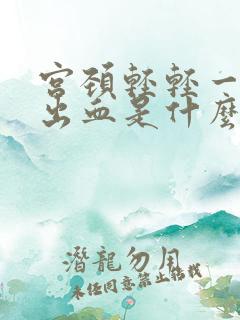 宫颈轻轻一
出血是什麼
潛龍勿用
未经同意禁止转载